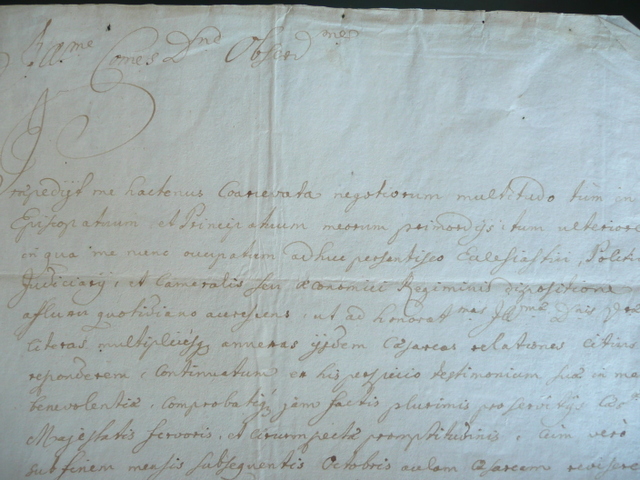 Ill.me Comes Dnd Obserd me
Impedijt me hactenus Coacervata negotiorum multitudo tùm in
Episcopatuum et Principatuum meorum primordijs, tùm ulteriore
in qua me nunc occupatum adhuc persentisco Ecclesiastici, Politi
Judiciarij, et Cameralis seu Œconomici Regiminis dispositione
affluxu quotidiano accrescens, ut ad honorat mas Ill mae Dnis Vrae
Literas multiplices, annexas ijsdem Cæsareas relationes citius
reponderem, Continuatum ex his perspicio testimonium suæ in me
benevolentiæ, comprobatiq, jam factis plurimis pro servitijs Cæs
Majestatis fervoris, et circumspectæ promptitudinis, Cùm verò
sub finem mensis subsequentis Octobris aulam Cæsaream revisere